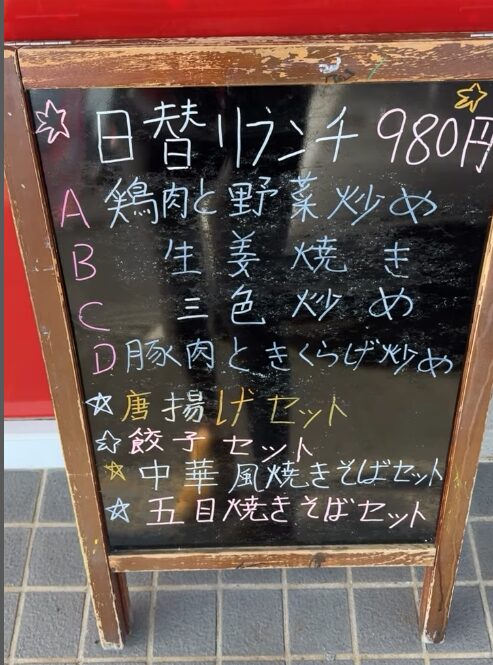 日替りランチ 980円
A 鶏肉と野菜炒め
B 生姜焼き
C 三色炒め
D 豚肉ときくらげ炒め
☆ 唐揚げセット
☆ 餃子セット
☆ 中華風焼きそばセット
☆ 五目焼きそばセット